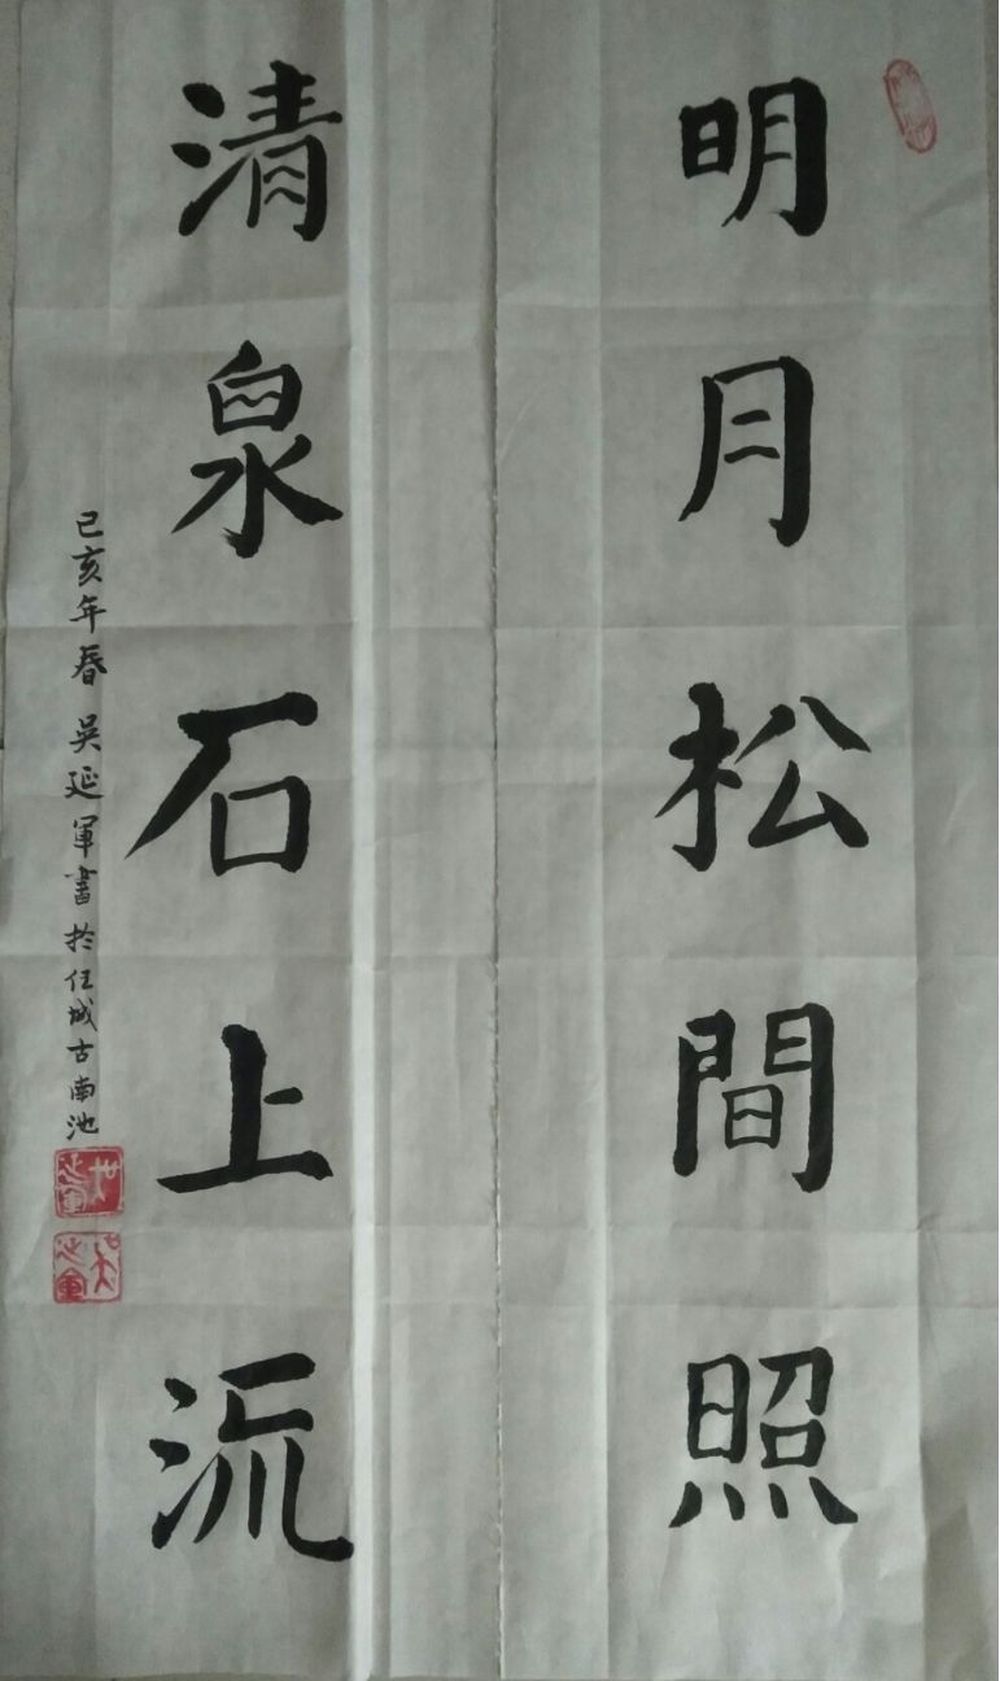 明月松間照
清泉石上流
己亥年春 吳延軍書於任城古南池